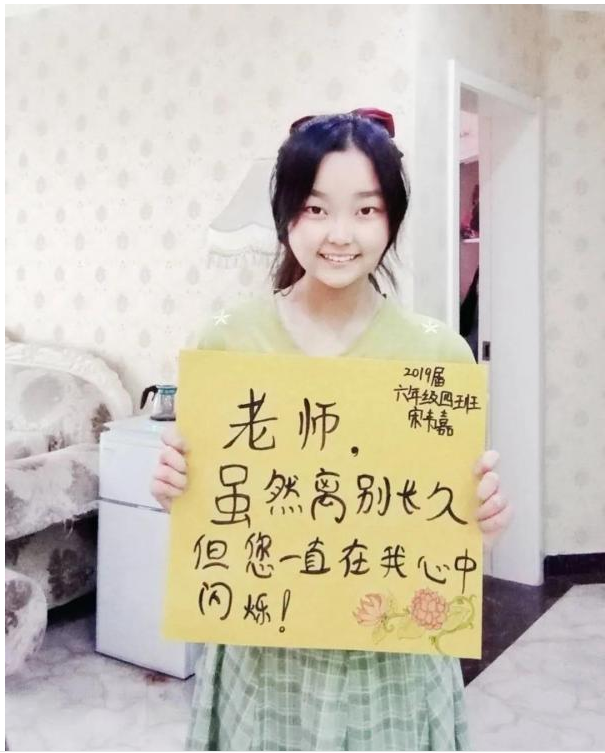 2019届
六年级四班
宋卡嘉
老师，
虽然离别长久
但您一直在我心中
闪烁！